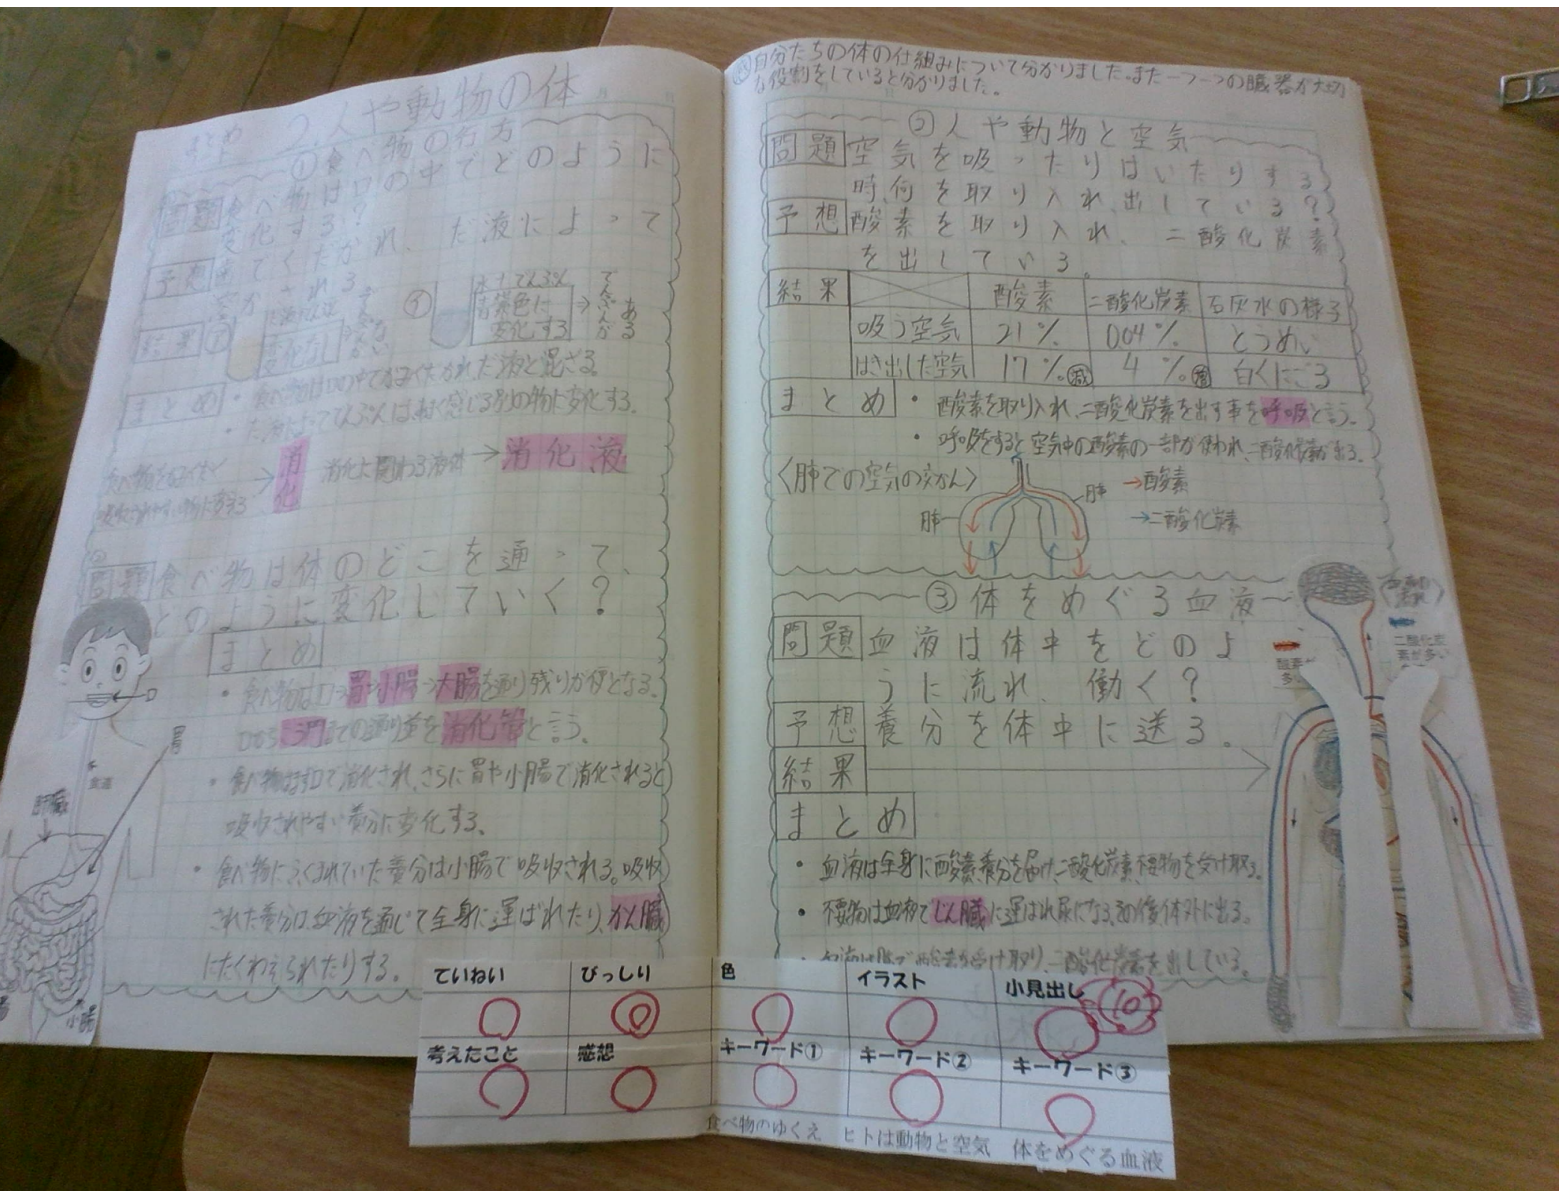 まとめ 2.人や動物の体
①食べ物の行方
問題 食べ物は口の中でどのように
変化する?
予想 歯でくだかれ、だ液によって
変化される
結果 ㋐
変化なし
㋑
青紫色に
変化する
→でんぷんがある
まとめ ・食べ物は口の中で細かくくだかれだ液と混ざる。
・だ液によってでんぷんは、別の物に変化する。
食べ物を細かく
吸収されやすい物に変える
→消化
消化に関わる液体→消化液
②
問題 食べ物は体のどこを通って、
どのように変化していく?
まとめ
・食べ物は口→胃→小腸→大腸を通り残りが便となる。
口からこう門までの通り道を消化管と言う。
・食べ物は口で消化され、さらに胃や小腸で消化されると
吸収されやすい養分に変化する。
・食べ物にふくまれていた養分は小腸で吸収される。吸収
された養分は、血液を通じて全身に運ばれたり、かん臓
にたくわえられたりする。
口
胃
食道
肝臓
小腸
自分たちの体の仕組みについて分かりました。また一つ一つの臓器が大切
な役割をしていると分かりました。
②人や動物と空気
問題 空気を吸ったりはいたりする
時、何を取り入れ、出している?
予想 酸素を取り入れ、二酸化炭素
を出している。
結果 酸素 二酸化炭素 石灰水の様子
吸う空気 21% 0.04% とうめい
はき出した空気 17%減 4%増 白くにごる
まとめ ・酸素を取り入れ、二酸化炭素を出す事を呼吸と言う。
・呼吸をすると空気中の酸素の一部が使われ、二酸化炭素が出る。
〈肺での空気の交かん〉
肺
肺
→酸素
→二酸化炭素
③体をめぐる血液
問題 血液は体中をどのよ
うに流れ、働く?
予想 養分を体中に送る。
結果
まとめ
・血液は全身に酸素、養分を届け、二酸化炭素、不要物を受け取る。
・不要物は血液でじん臓に運ばれ尿になる、その後体外に出る。
・血液は肺で酸素を受け取り、二酸化炭素を出している。
酸素が多い
二酸化炭素が多い
ていねい びっしり 色 イラスト 小見出し
考えたこと 感想 キーワード① キーワード② キーワード③
食べ物のゆくえ ヒトは動物と空気 体をめぐる血液